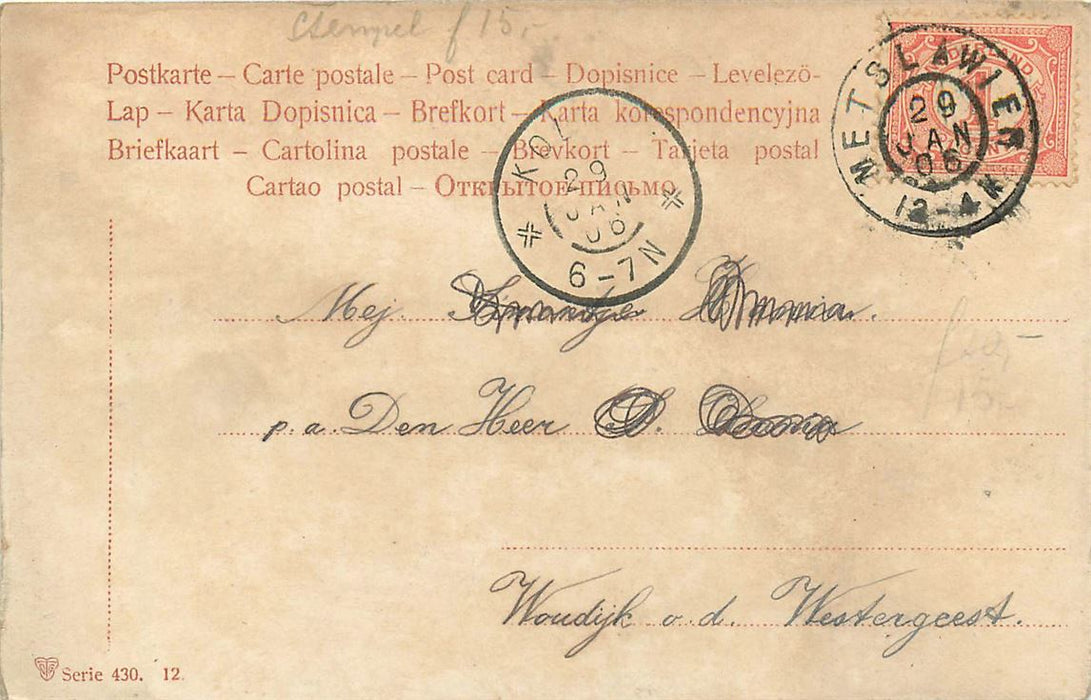 Stempel f 15,-
Postkarte – Carte postale – Post card – Dopisnice – Levelező-
Lap – Karta Dopisnica – Brefkort – Karta korespondencyjna
Briefkaart – Cartolina postale – Brevkort – Tarjeta postal
Cartao postal – Открытое письмо
METSLAWIER
29
JAN
06
12-4N
KOL
29
JAN
06
6-7N
Mej.
f 10,-
15,-
p.a. Den Heer
Woudijk o.d. Westergeest.
Serie 430. 12.